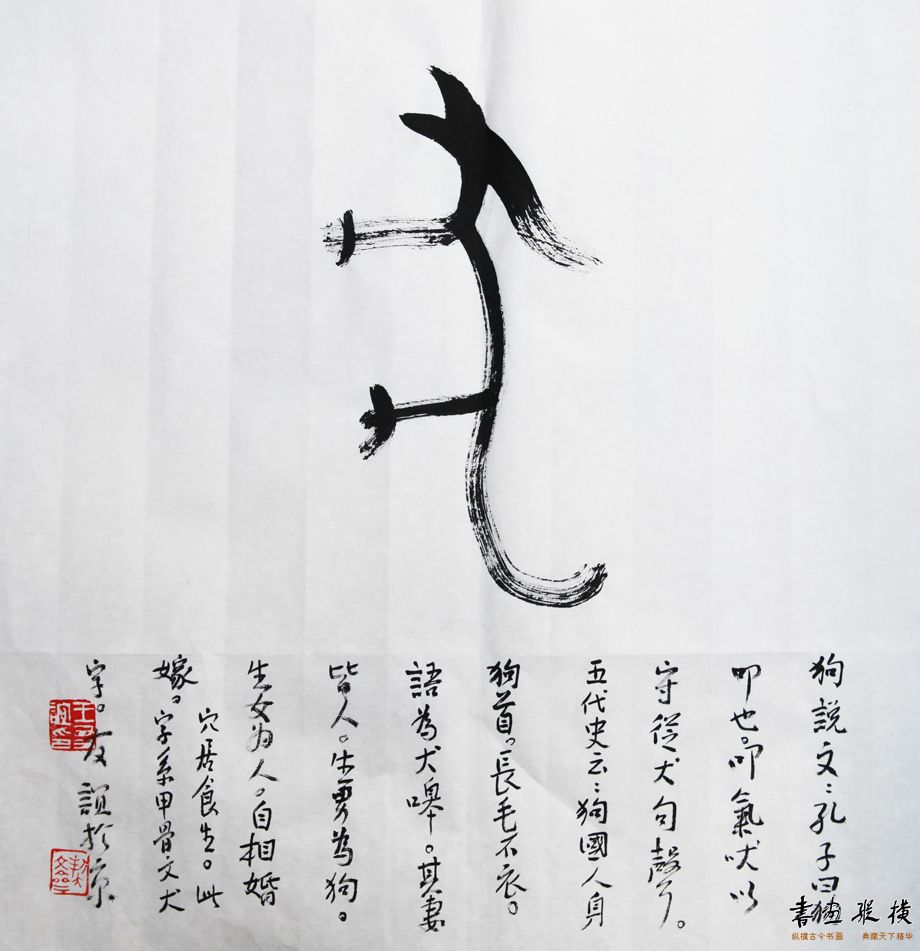 犬
狗說文：孔子曰狗
叩也。叩氣吠以
守從犬句聲。
五代史云：狗國人身
狗首。長毛不衣。
語為犬嗥。其妻
皆人。生男為狗。
生女为人。自相婚
嫁。穴居食生。此
字系甲骨文犬
字。友誼於京
王友誼印
書畫縱橫
纵横古今书画 典藏天下精华